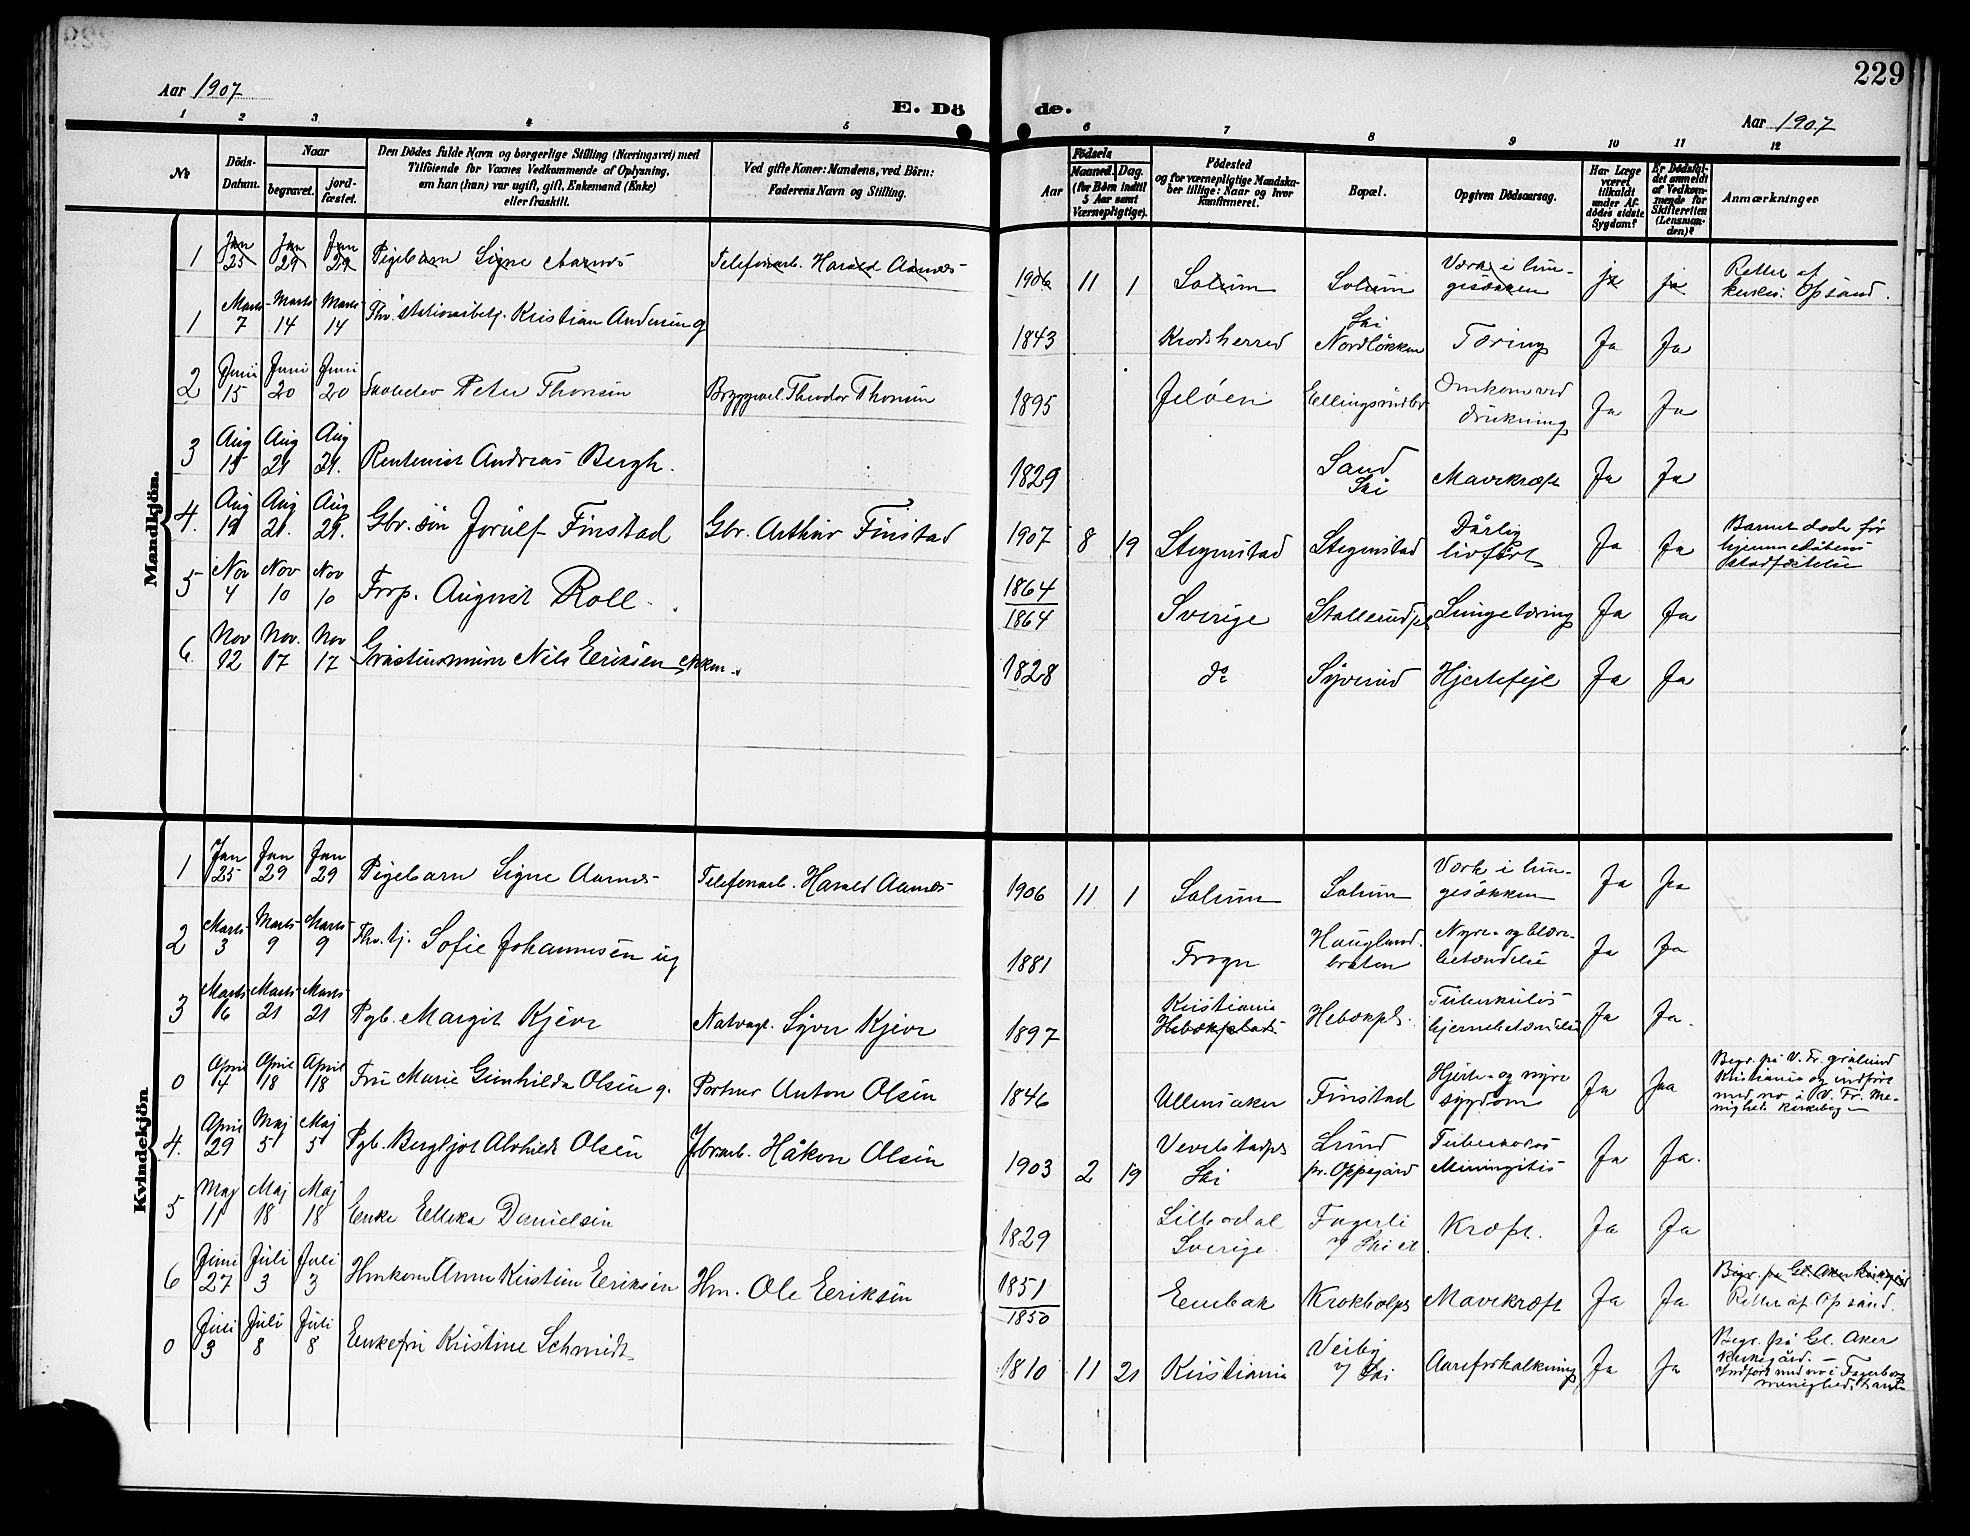 229
Aar 1907
E. Dö de.
Aar 1907
1 2 3 4 5 6 7 8 9 10 11 12
№
Döds-
Datum.
Naar
begravet.
jord-
fæstet.
Den Dödes fulde Navn og borgerlige Stilling (Næringsvei) med
Tilföiende for Voxnes Vedkommende af Oplysning,
om han (hun) var ugift, gift, Enkemand (Enke)
eller fraskilt.
Ved gifte Koner: Mandens, ved Börn:
Faderens Navn og Stilling.
Födsels
Aar
Maaned. Dag.
(for Börn indtil
5 Aar samt
Værnepligtige).
Födested
og for værnepligtige Mandska-
ber tillige: Naar og hvor
konfirmeret.
Bopæl.
Opgiven Dödsaarsag.
Har Læge
været
tilkaldt
under Af-
dødes sidste
Sygdom?
Er Dödsfal-
det anmeldt
af Vedkom-
mende for
Skifteretten
(Lensman-
den)?
Anmærkninger
Mandkjön.
1 Jan 25 Jan 29 Jan 29 Pigebarn Signe Aarnes Telefonarb. Harald Aarnes 1906 11 1 Solum Solum Værk i lun-
gesækken ja ja Rettet af
kirkes. Opsand.
1 Marts 7 Marts 14 Marts 14 Fhv. stationsbetj. Kristian Andersen g 1843 Krodsherred Ski
Nordlökken Tæring Ja Ja
2 Juni 15 Juni 20 Juni 20 Skoleelev Peter Thorsen Theodor Thorsen 1895 Jelöen Ellingsrud Omkom ved
drukning Ja Ja
3 Aug 15 Aug 21 Aug 21. Rentenist Andreas Bergh. 1829 Sand
Ski Mavekræft Ja Ja
4. Aug 19 Aug 21. Aug 21. Gbr. sön Jorulf Finstad Gbr. Arthur Finstad 1907 8 19 Stegenstad Stegenstad Dårlig
livfört Ja Ja Barnet dode för
hjemmedåbens
stadfæstelse
5 Nov 4 Nov 10 Nov 10 Forp. August Roll. 1864
1864 Sverige Stallerudpl Lungetæring Ja Ja
6. Nov 12 Nov. 17 Nov 17 Nils Eriksen enkm. 1828 do Syverud Hjertefejl Ja Ja
Kvindekjön
1 Jan 25 Jan 29 Jan 29 Pigebarn Signe Aarnes Telefonarb. Harald Aarnes 1906 11 1 Solum Solum Værk i lun-
gesækken Ja Ja
2 Marts 3 Marts 9 Marts 9 Fhv. tj. Sofie Johannesen ug 1881 Frogn Hauglund-
braten Nyre- og blære-
betændelse Ja Ja
3 Marts 16 Marts 21 Marts 21 Pgb. Margit Kjevr Natvagt. Syver Kjevr 1897 Kristiania
Hebækplads Hebækpls. Tuberkuløs
hjernebetændelse Ja Ja.
0 April 14 April 18 April 18 Fru Marie Gunhilda Olsen g. Portner Anton Olsen 1846 Ullensaker Finstad Hjerte- og nyre
sygdom Ja Jaa Begr. på V. Fr. gravlund
Kristiania og indföre
med no i V. Fr. Me-
nigheds kirkebog
4. April 29 Maj 5 Maj 5 Pgb. Bergljot Alvhilde Olsen Jbrarb. Håkon Olsen 1903 2 19 Vevelstadpl
Ski Lund
pr. Oppegård Tuberkuløs
Meningitis Ja Ja.
5 Maj 11 Maj 18 Maj 18 Enke Elleka Danielsen 1829 Lilledal
Sverige. Fagerli
v/ Ski st. Kræft. Ja Ja
6 Juni 27 Juli 3 Juli 3 Hmkone Anne Kirstine Eriksen Hm. Ole Eriksen 1851
1850 Enebak Krokholpl Mavekræft Ja Ja Begr. på Gl. Aker kirkegård
Rettet af Opsand.
0 Juli 3 Juli 8 Juli 8 Enkefru Kristine Schmidt 1810 11 21 Kristiania Veiby
v/ Ski Aareforkalkning Ja Ja Begr. på Gl. Aker
Kirkegård. —
Indfört under no i Fagerborg
menigheds